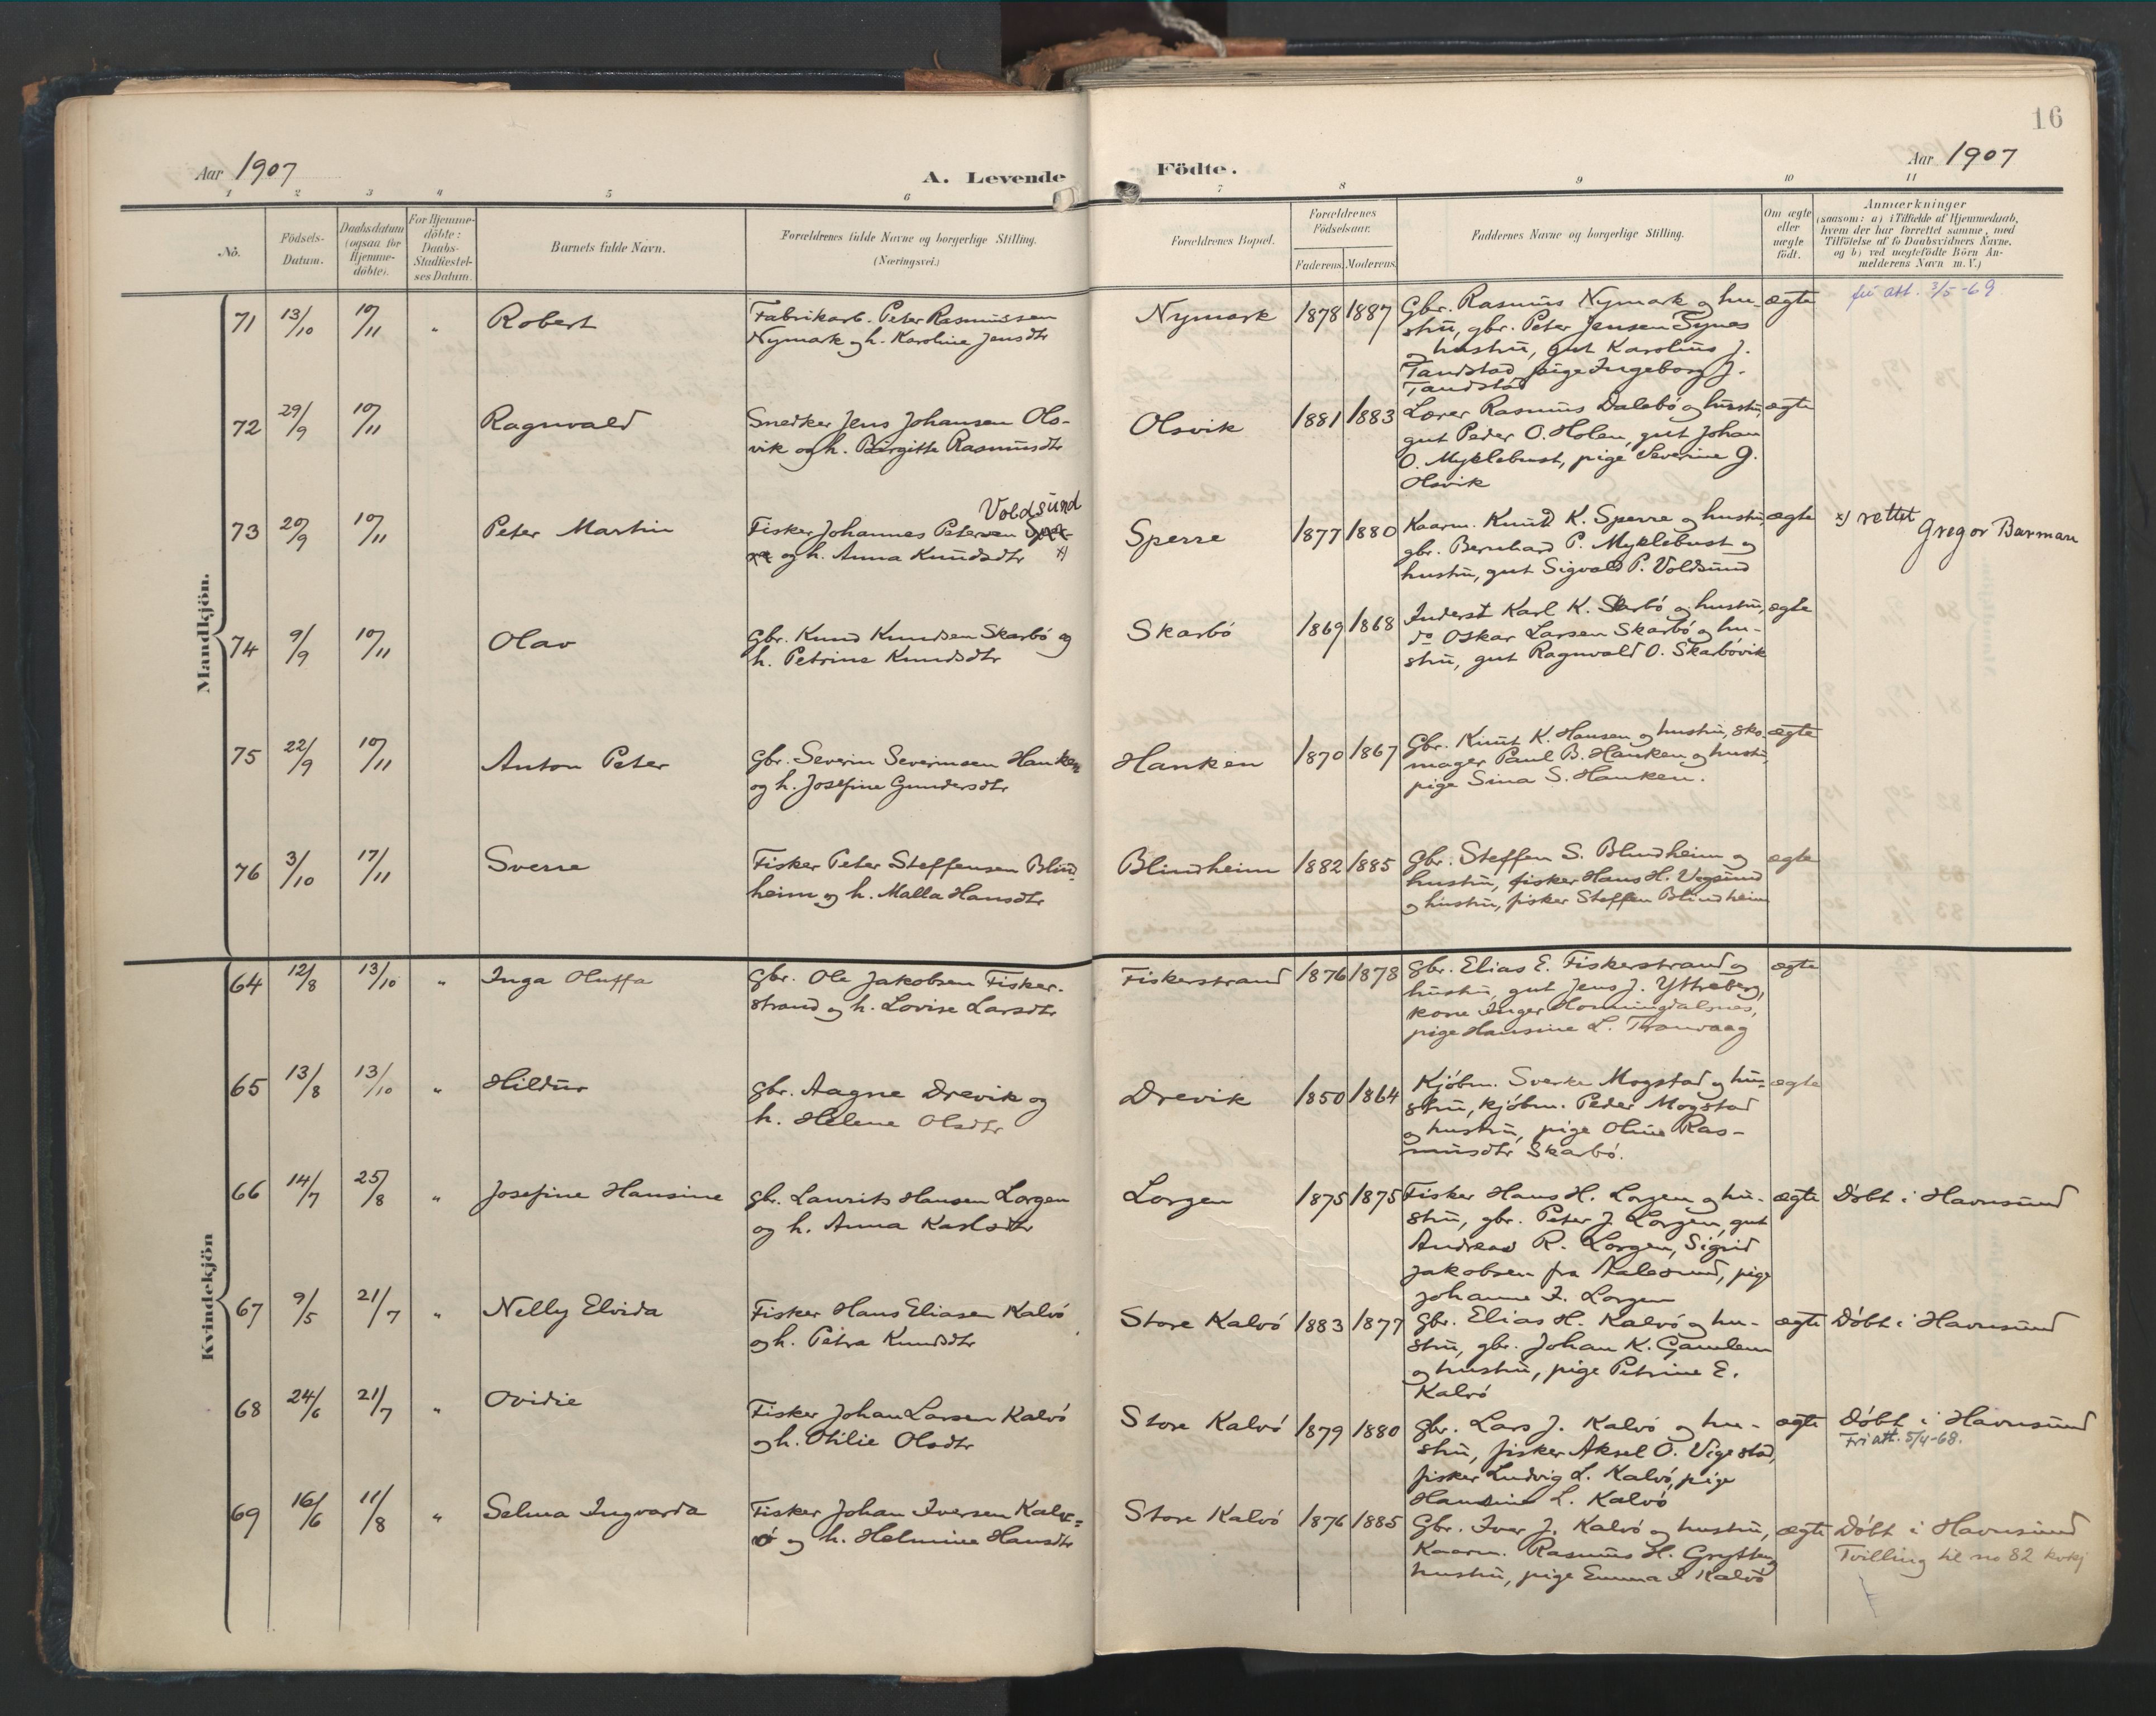 16
Aar 1907
A. Levende Födte.
Aar 1907
1 2 3 4 5 6 7 8 9 10 11
No.
Födsels-
Datum.
Daabsdatum
(ogsaa for
Hjemme-
döbte).
For Hjemme-
döbte:
Daabs-
Stadfæstel-
ses Datum.
Barnets fulde Navn.
Forældrenes fulde Navne og borgerlige Stilling.
(Næringsvei.)
Forældrenes Bopæl.
Forældrenes
Födselsaar.
Faderens. Moderens.
Faddernes Navne og borgerlige Stilling.
Om ægte
eller
uægte
født.
Anmærkninger
(saasom: a) i Tilfælde af Hjemmedaab,
hvem der har forrettet samme, med
Tilföielse af to Daabsvidners Navne.
og b) ved uægtefödte Börn An-
melderens Navn m. V.)
Mandkjön.
71 13/10 10/11 " Robert
Fabrikarb. Peter Rasmussen
Nymark og h. Karoline Jensdtr
Nymark 1878 1887
Gbr. Rasmus Nymark og hu-
stru, gbr. Peter Jensen Synes
og hustru, gut Karolius J.
Tandstad, pige Ingeborg J.
Tandstad
ægte
fri att. 3/5-69
72 29/9 10/11 Ragnvald
Snedker Jens Johansen Ols-
vik og h. Birgitte Rasmusdtr
Olsvik 1881 1883
Lærer Rasmus Dalebö og hustru,
gut Peder O. Holen, gut Johan
O. Myklebust, pige Severine J.
Olsvik
ægte
73 20/9 10/11 Peter Martin
Voldsund
Fisker Johannes Petersen Sper-
re og h. Anna Knudsdtr x)
Sperre 1877 1880
Kaarm. Knud K. Sperre og hustru,
gbr. Bernhard P. Myklebust og
hustru, gut Sigvald P. Voldsund
ægte
x) rettet
Gregor Barman
74 9/9 10/11 Olav
Gbr. Knud Knudsen Skarbö og
h. Petrine Knudsdtr
Skarbö 1869 1868
Inderst Karl K. Skarbö og hustru,
do Oskar Larsen Skarbö og hu-
stru, gut Ragnvald O. Skarbövik
ægte
75 22/9 10/11 Anton Peter
Gbr. Severin Severinsen Hanken
og h. Josefine Gundersdtr
Hanken 1870 1867
Gbr. Knut K. Hansen og hustru, sko-
mager Paul B. Hanken og hustru,
pige Sina S. Hanken.
ægte
76 3/10 17/11 Sverre
Fisker Peter Steffensen Blind-
heim og h. Malla Hansdtr
Blindheim 1882 1885
Gbr. Steffen S. Blindheim og
hustru, fisker Hans H. Vegsund
og hustru, fisker Steffen Blindheim
ægte
Kvindekjön
64 12/8 13/10 " Inga Oluffa
Gbr. Ole Jakobsen Fisker-
strand og h. Lovise Larsdtr
Fiskerstrand 1876 1878
Gbr. Elias E. Fiskerstrand og
hustru, gut Jens J. Yttreberg,
kone Inger Honningdalsnes,
pige Hansine L. Tranvaag
ægte
65 13/8 13/10 " Hildur
Gbr. Aagne Drevik og
h. Helene Olsdtr
Drevik 1850 1864
Kjöbm. Sverke Mogstad og hu-
stru, kjöbm. Peder Mogstad
og hustru, pige Oline Ras-
musdtr Skarbö.
ægte
66 14/7 25/8 " Josefine Hansine
Gbr. Laurits Hansen Lorgen
og h. Anna Karlsdtr
Lorgen 1875 1875
Fisker Hans H. Lorgen og hu-
stru, gbr. Peter J. Lorgen, gut
Andreas R. Lorgen, Sigrid
Jakobsen fra Aalesund, pige
Johanne I. Lorgen
ægte
Döbt i Havnsund
67 9/5 21/7 " Nelly Elvida
Fisker Hans Eliasen Kalvö
og h. Petra Knudsdtr
Store Kalvö 1883 1877
Gbr. Elias H. Kalvö og hu-
stru, gbr. Johan K. Gamlem
og hustru, pige Petrine E.
Kalvö
ægte
Döbt i Havnsund
68 24/6 21/7 " Ovidie
Fisker Johan Larsen Kalvö
og h. Otilie Olsdtr
Store Kalvö 1879 1880
Gbr. Lars J. Kalvö og hu-
stru, fisker Aksel O. Vigestad,
fisker Ludvig L. Kalvö, pige
Hansine L. Kalvö
ægte
Döbt i Havnsund
Fri att. 5/4-68.
69 16/6 11/8 " Selma Ingvarda
Fisker Johan Iversen Kalv-
ö og h. Helmine Hansdtr
Store Kalvö 1876 1885
Gbr. Iver J. Kalvö og hustru,
Kaarm. Rasmus H. Grytten og
hustru, pige Emma I Kalvö
ægte
Döbt i Havnsund
Tvilling til no 82 kvkj